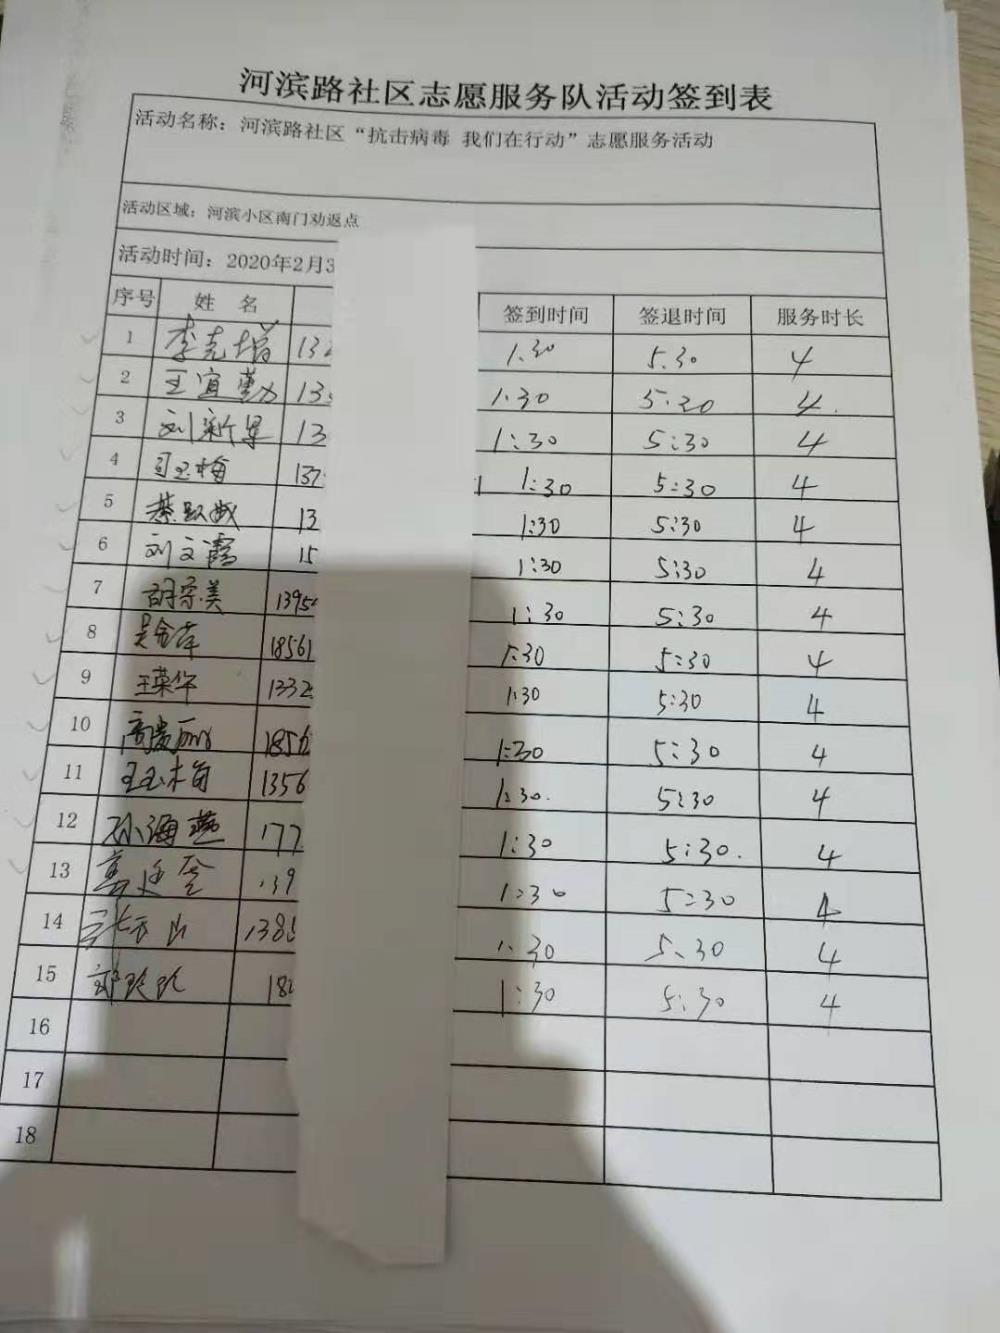 河滨路社区志愿服务队活动签到表
活动名称：河滨路社区“抗击病毒 我们在行动”志愿服务活动
活动区域：河滨小区南门劝返点
活动时间：2020年2月3
序号 姓 名 签到时间 签退时间 服务时长
1 李克增 132 1:30 5:30 4
2 王宜勤 13 1:30 5:20 4
3 刘新军 13 1:30 5:30 4
4 司玉梅 137 1:30 5:30 4
5 13 1:30 5:30 4
6 刘文霞 15 1:30 5:30 4
7 胡宗美 1395 1:30 5:30 4
8 吴金萍 18561 1:30 5:30 4
9 王荣华 1332 1:30 5:30 4
10 高贵丽 1856 1:30 5:30 4
11 王玉梅 1356 1:30. 5:30 4
12 孙海燕 177 1:30 5:30. 4
13 139 1:30 5:30 4
14 138 1:30 5:30 4
15 18 1:30 5:30 4
16
17
18